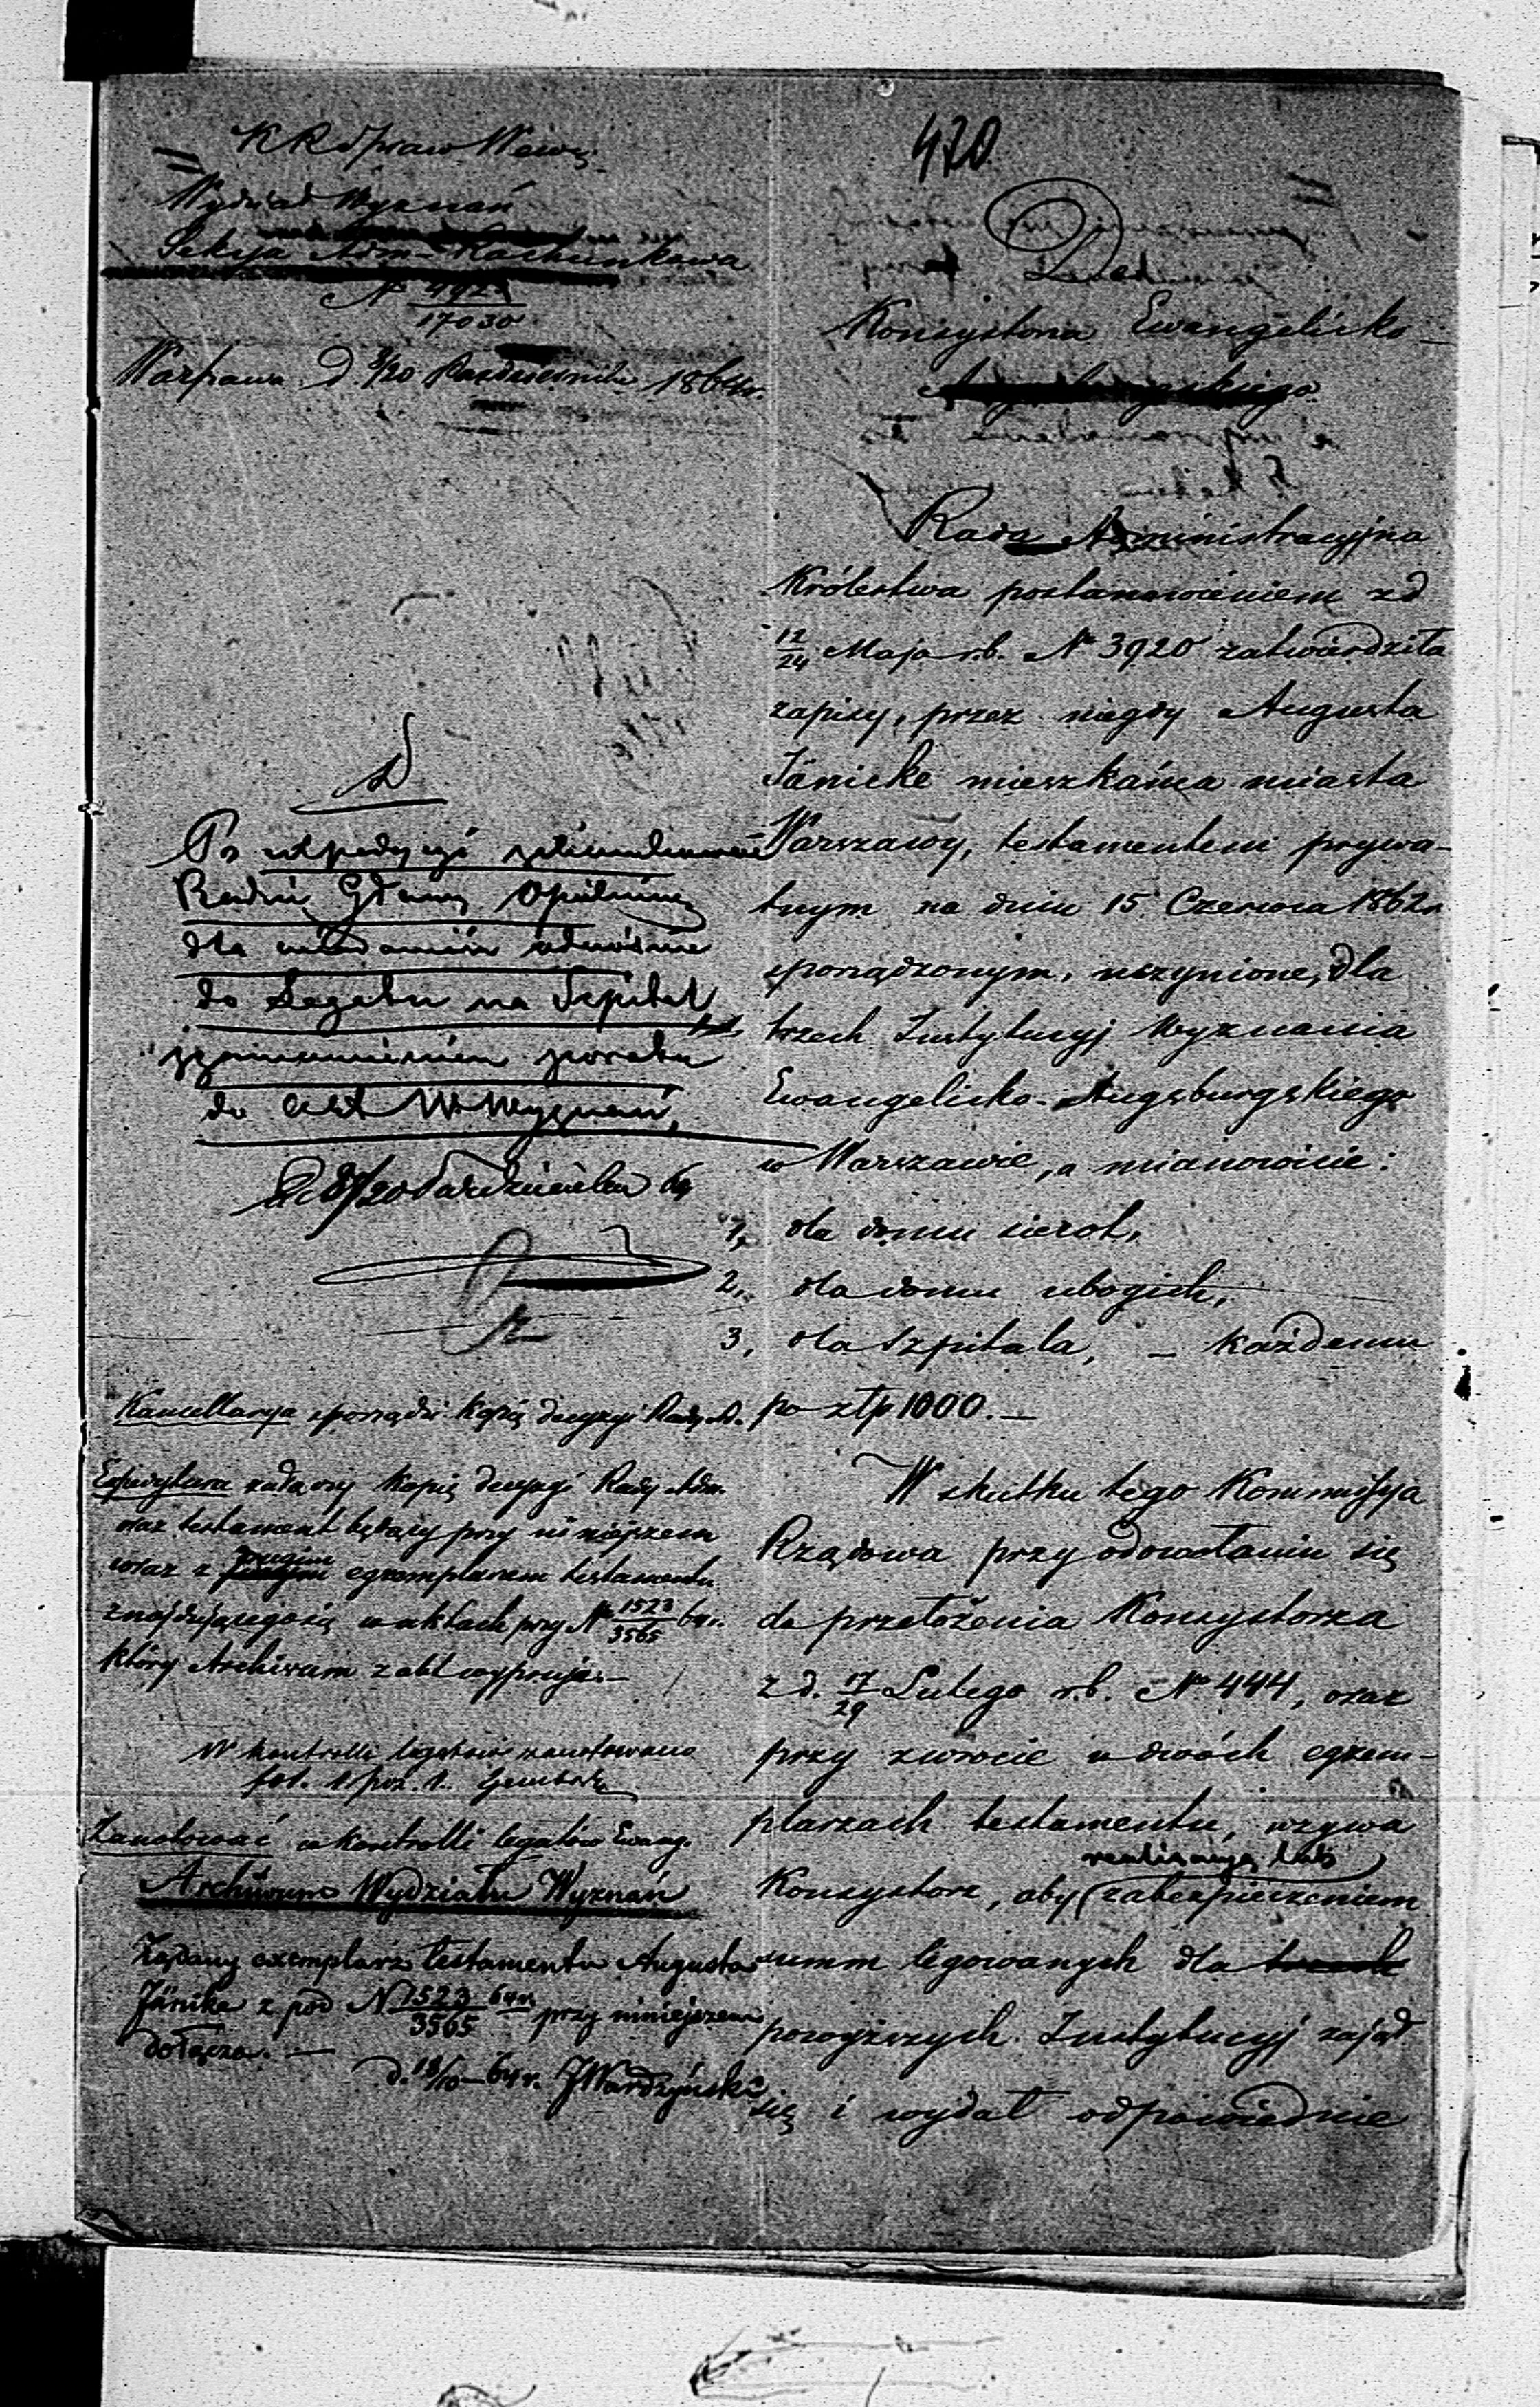 470
K R Spraw Wewn.
Wydział Wyznań
Sekcja Adm-Rachunkowa
N 4923/17030
Warszawa d. 8/20 Października 1864 r.
Do
Konsystorza Ewangelicko-
Augsburgskiego.
Rada Administracyjna
Królestwa postanowieniem z d
12/24 Maja r.b. N 3920 zatwierdziła
zapisy, przez niegdy Augusta
Jänicke mieszkańca miasta
Warszawy, testamentem prywa-
tnym na dniu 15 Czerwca 1862 r.
sporządzonym, uczynione, dla
trzech Instytucyj Wyznania
Ewangelicko-Augsburgskiego
w Warszawie, a mianowicie:
1, dla domu sierot,
2, dla domu ubogich,
3, dla Szpitala, – każdemu
po złp 1000. –
W skutku tego Kommissyja
Rządowa przy odwołaniu się
do przełożenia Konsystorza
z d. 17/29 Lutego r.b. N 444, oraz
przy zwrocie w dwóch egzem-
plarzach testamentu, wzywa
realizacyą lub
Konsystorz, aby zabezpieczeniem
summ legowanych dla trzech
powyższych Instytucyj zajął
się i wydał odpowiednie
Po expedycyi zakomunikować
Radzie Główn. Opiekuńcz.
dla wiadomości odnośnie
do Legatu na Szpital
z zwrotu
do akt W. Wyznań,
d 8/20 Października 64
Kancellarya sporządzi kopię decyzyi Rady Ad.
Expedytura załączy kopię decyzyi Rady Adm.
oraz testament będący przy niniejszem
wraz z drugim egzemplarzem testamentu
znajdującego się w aktach przy N 1523/3565 64 r.
który Archiwum z akt wypruje. –
W kontrolli legatów zanotowano
fol. 1 poz. 1.
Zanotować w kontrolli legatów Ewang.
Archiwum Wydziału Wyznań
Żądany exemplarz testamentu Augusta
Jänike z pod N 1523/3565 64 r. przy niniejszem
dołącza. –
d. 18/10 – 64 r. J Wardzyński